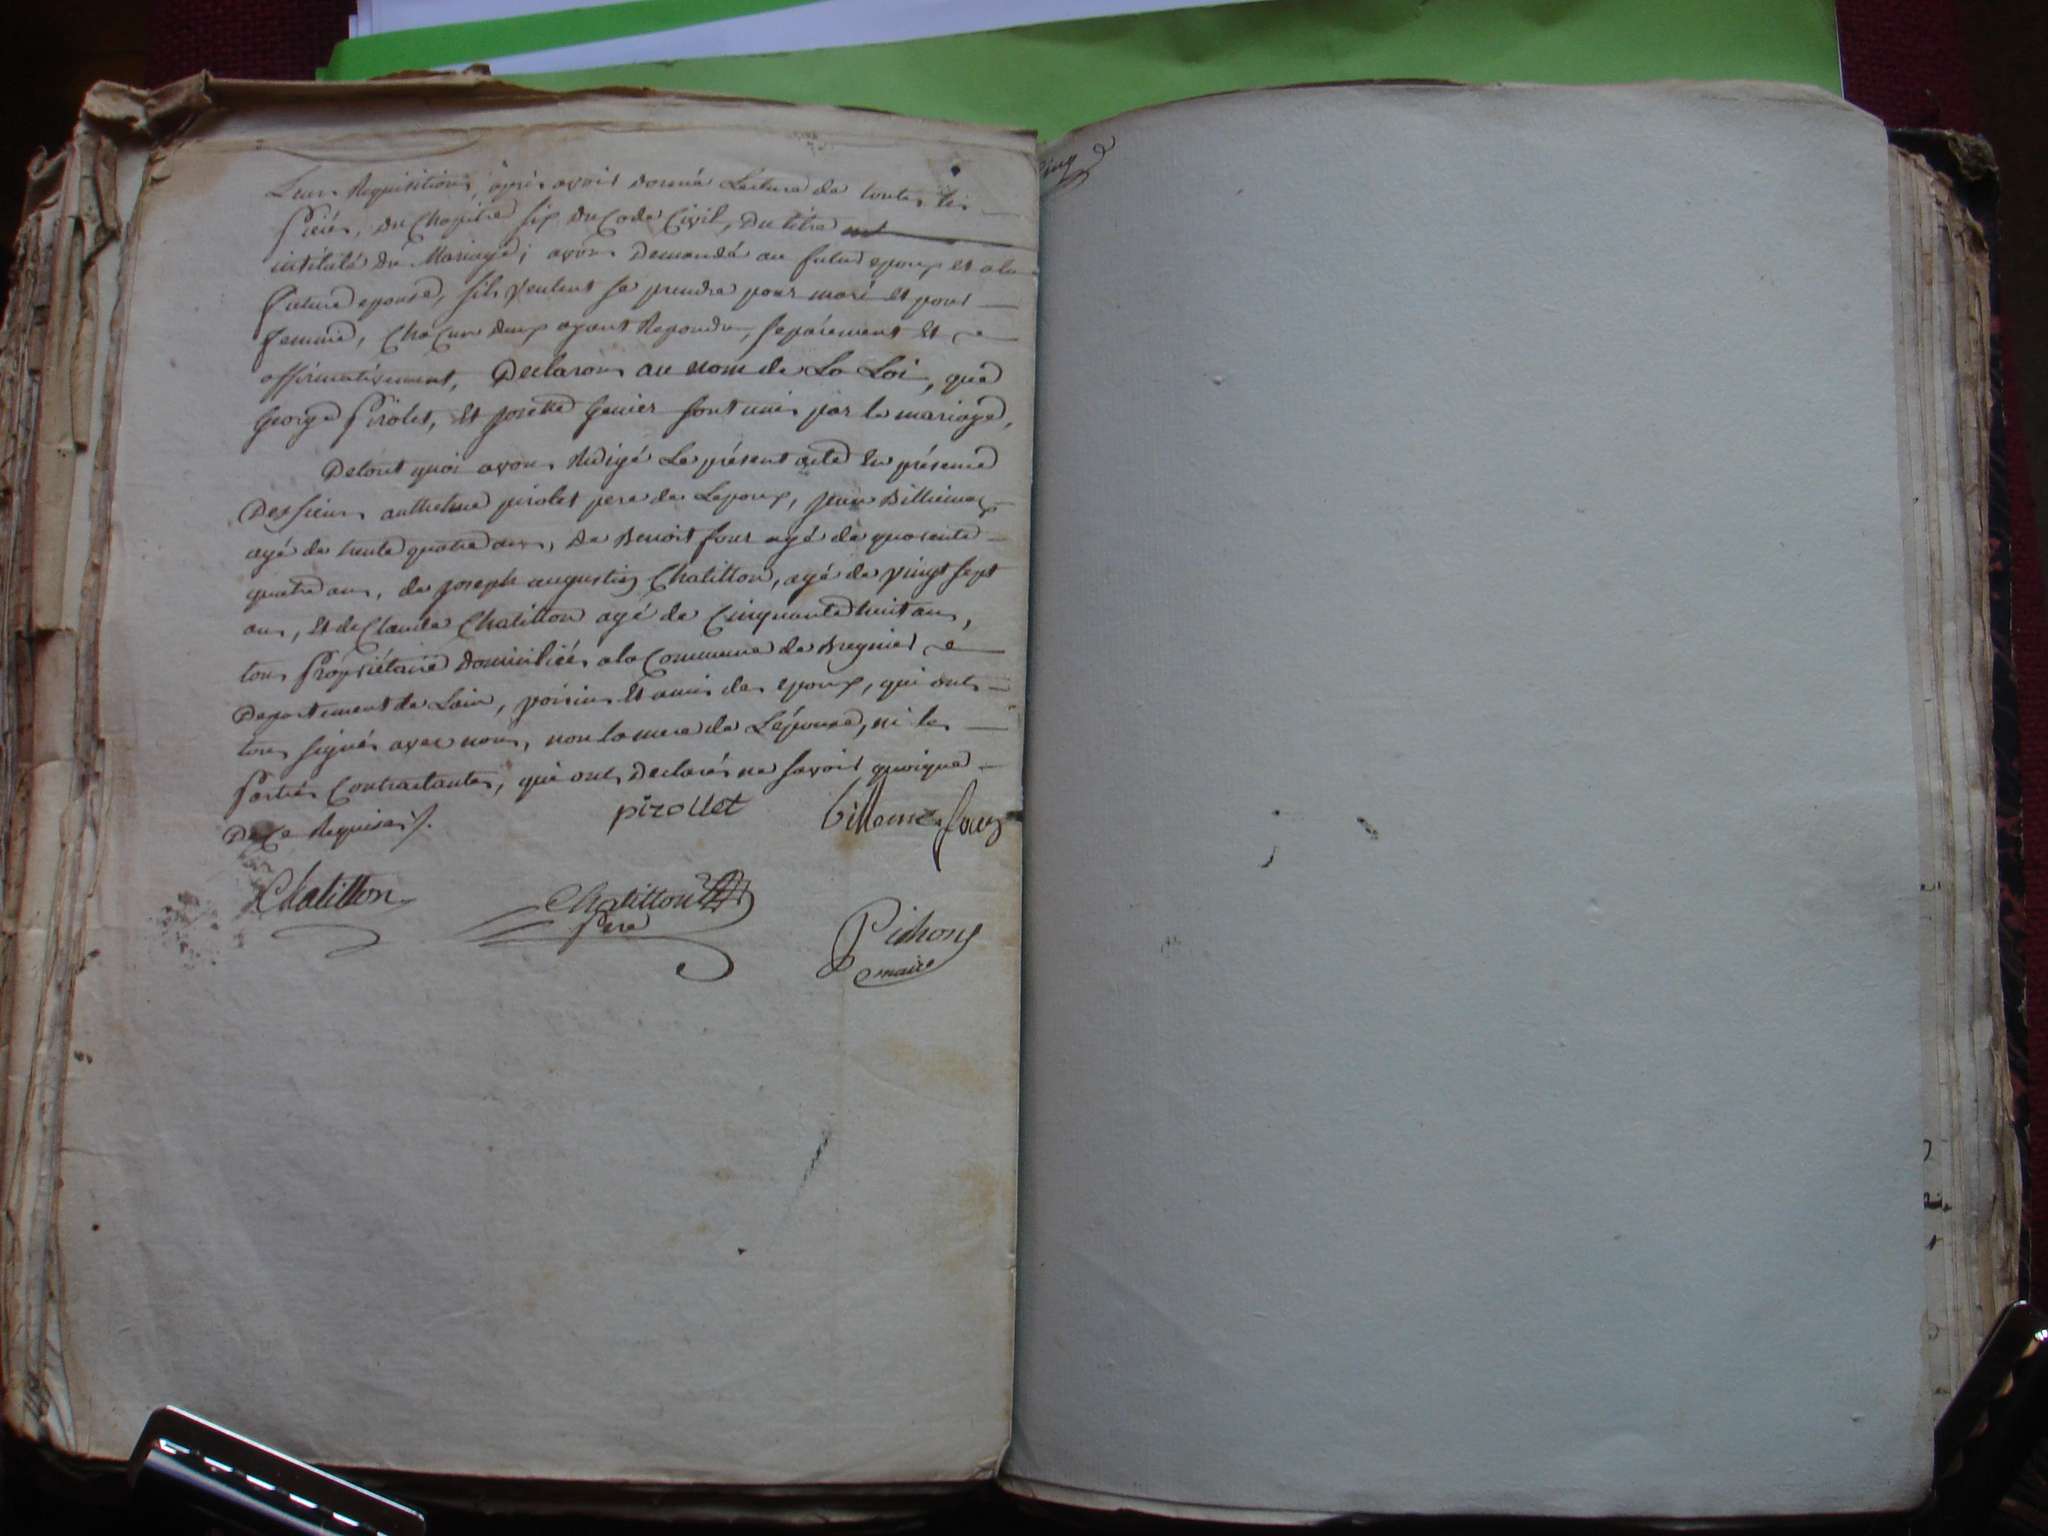 Leur Requisition, après avoir donné Lecture de toutes les
Piéces, du Chapitre six du Code Civil, du titre
intitulé du Mariage; avons Demandé au futur epoux et ala
future epouse, sils veulent se prendre pour mari et pour
femme, Chacun deux ayant Repondu, separement Et
affirmativement, Declarons au nom de La Loi, que
george Pirolet, Et josette genier sont unis par le mariage,
De tout quoi avons Redigé Le présent acte En présence
Des sieurs anthelme pirolet pere de Lepoux, jean Billiemaz
agé de trente quatre ans, De Benoit four agé de quarente
quatre ans, de joseph augustin Chatillon, agé de vingt sept
ans, Et de Claude Chatillon agé de Cinquante huit ans,
tous Propriétaire domiciliés ala Commune de Bregnier
Departement de Lain, voisins Et amis des epoux, qui ont
tous signés avec nous, non la mere de Lépouse, ni les
Parties Contractantes, qui ont declarés ne savoir quoique
De Ce Requises.
pirollet billiemaz four
Chatillon Chatillon
Pere
Pichon
maire